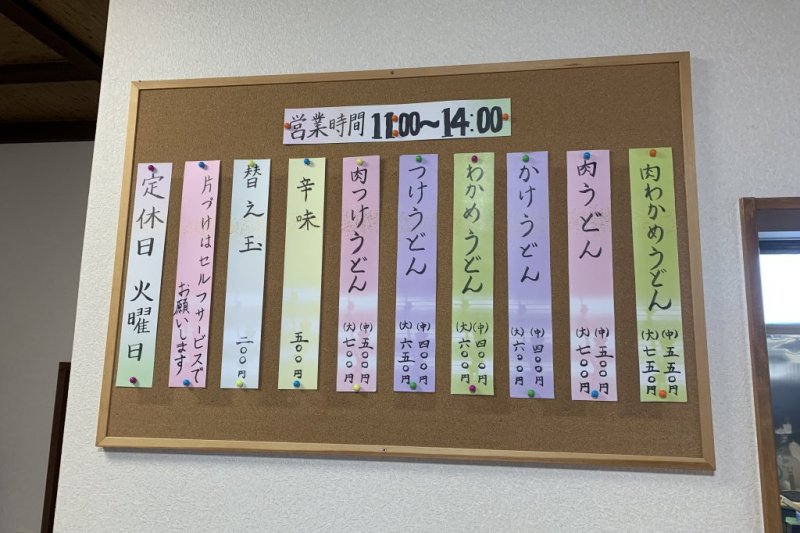 営業時間 11:00～14:00
肉わかめうどん
(中)五五〇円
(大)七五〇円
肉うどん
(中)五〇〇円
(大)七〇〇円
かけうどん
(中)四〇〇円
(大)六〇〇円
わかめうどん
(中)四〇〇円
(大)六〇〇円
つけうどん
(中)四〇〇円
(大)六五〇円
肉つけうどん
(中)五〇〇円
(大)七〇〇円
辛味 五〇〇円
替え玉 二〇〇円
片づけはセルフサービスで
お願いします
定休日 火曜日